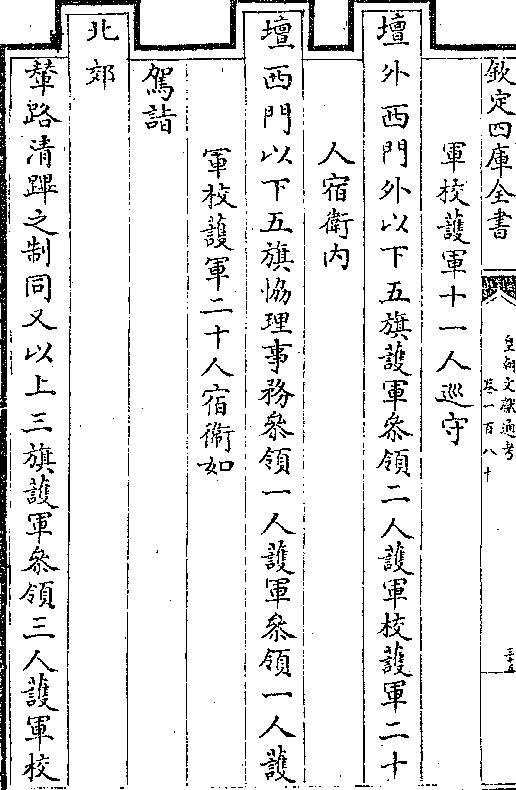 欽定四庫全書
皇朝文獻通考
卷一百八十
三十五
軍校護軍十一人巡守
壇外西門外以下五旗護軍叅領二人護軍校護軍二十
人宿衛内
壇西門以下五旗恊理事務叅領一人護軍叅領一人護
軍校護軍二十人宿衛如
駕詣
北郊
輦路清蹕之制同又以上三旗護軍叅領三人護軍校